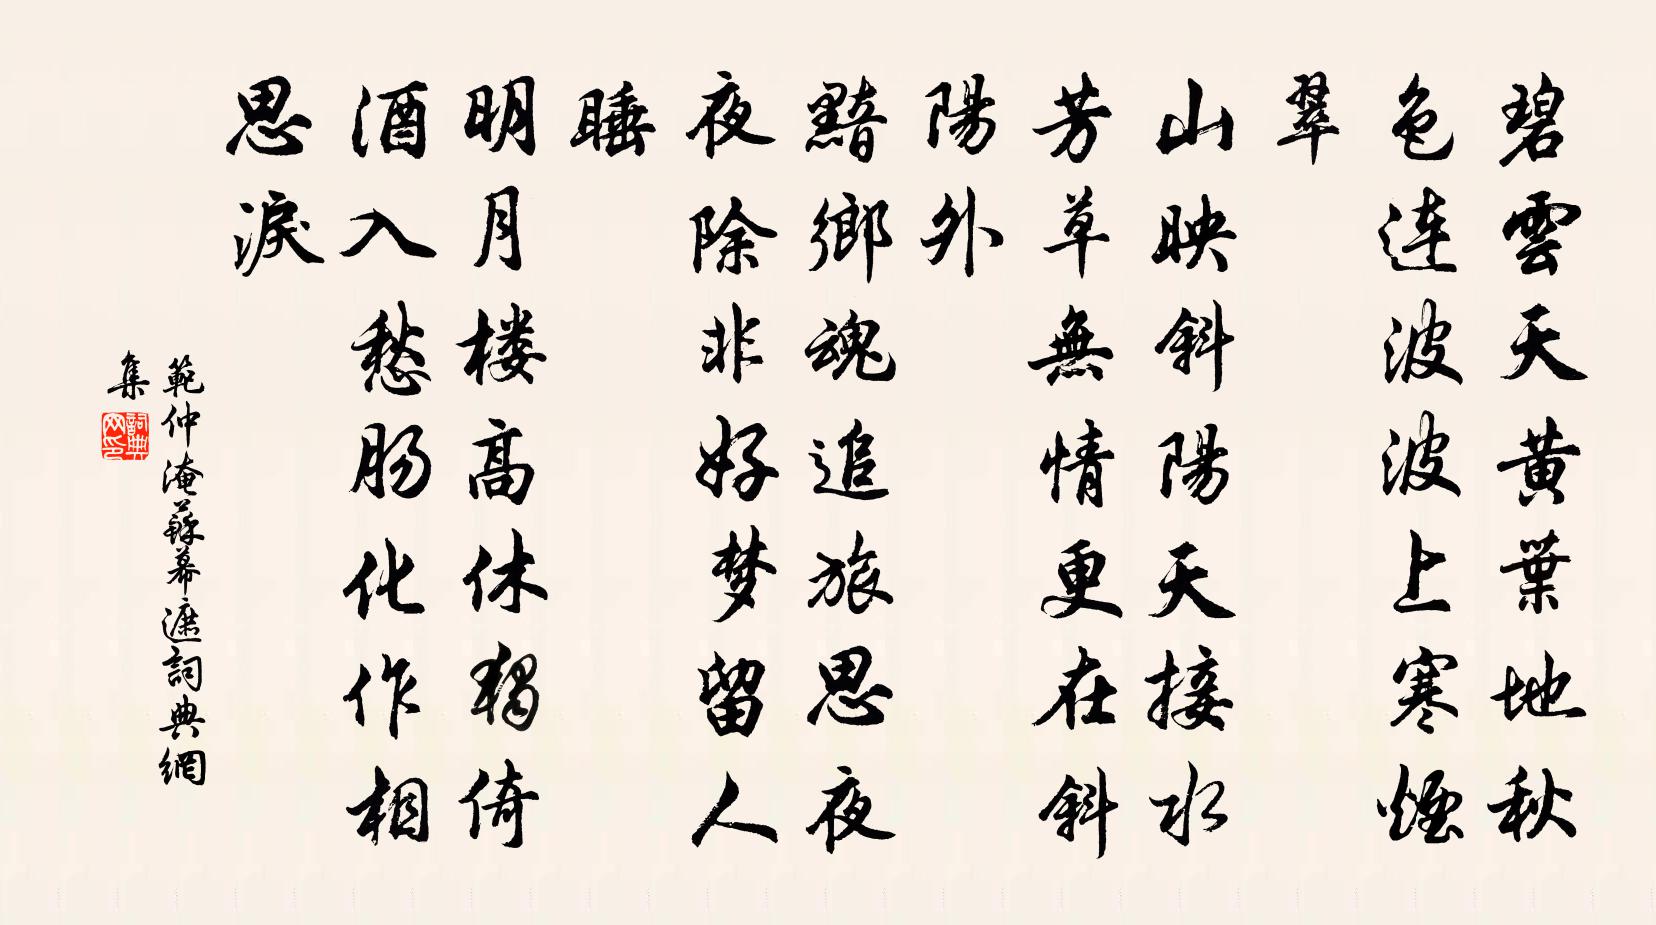 碧雲天黄葉地秋
色連波波上寒煙
翠
山映斜陽天接水
芳草無情更在斜
陽外
黯鄉魂追旅思夜
夜除非好梦留人
睡
明月楼高休獨倚
酒入愁肠化作相
思淚
範仲淹蘇幕遮詞典網
集
詞典網印